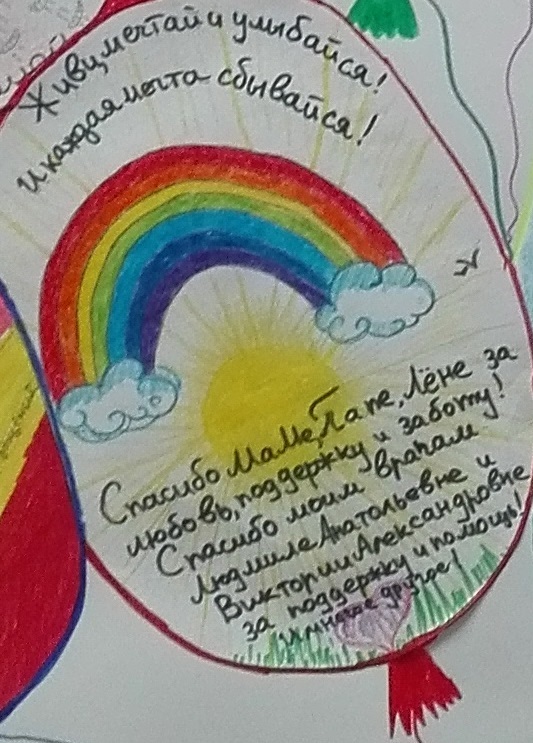 Живи, мечтай и улыбайся!
И каждая мечта сбывайся!
Спасибо Маме, Папе, Лёне за
любовь, поддержку и заботу!
Спасибо моим врачам
Людмиле Анатольевне и
Виктории Александровне
за поддержку и помощь!
и многое другое!